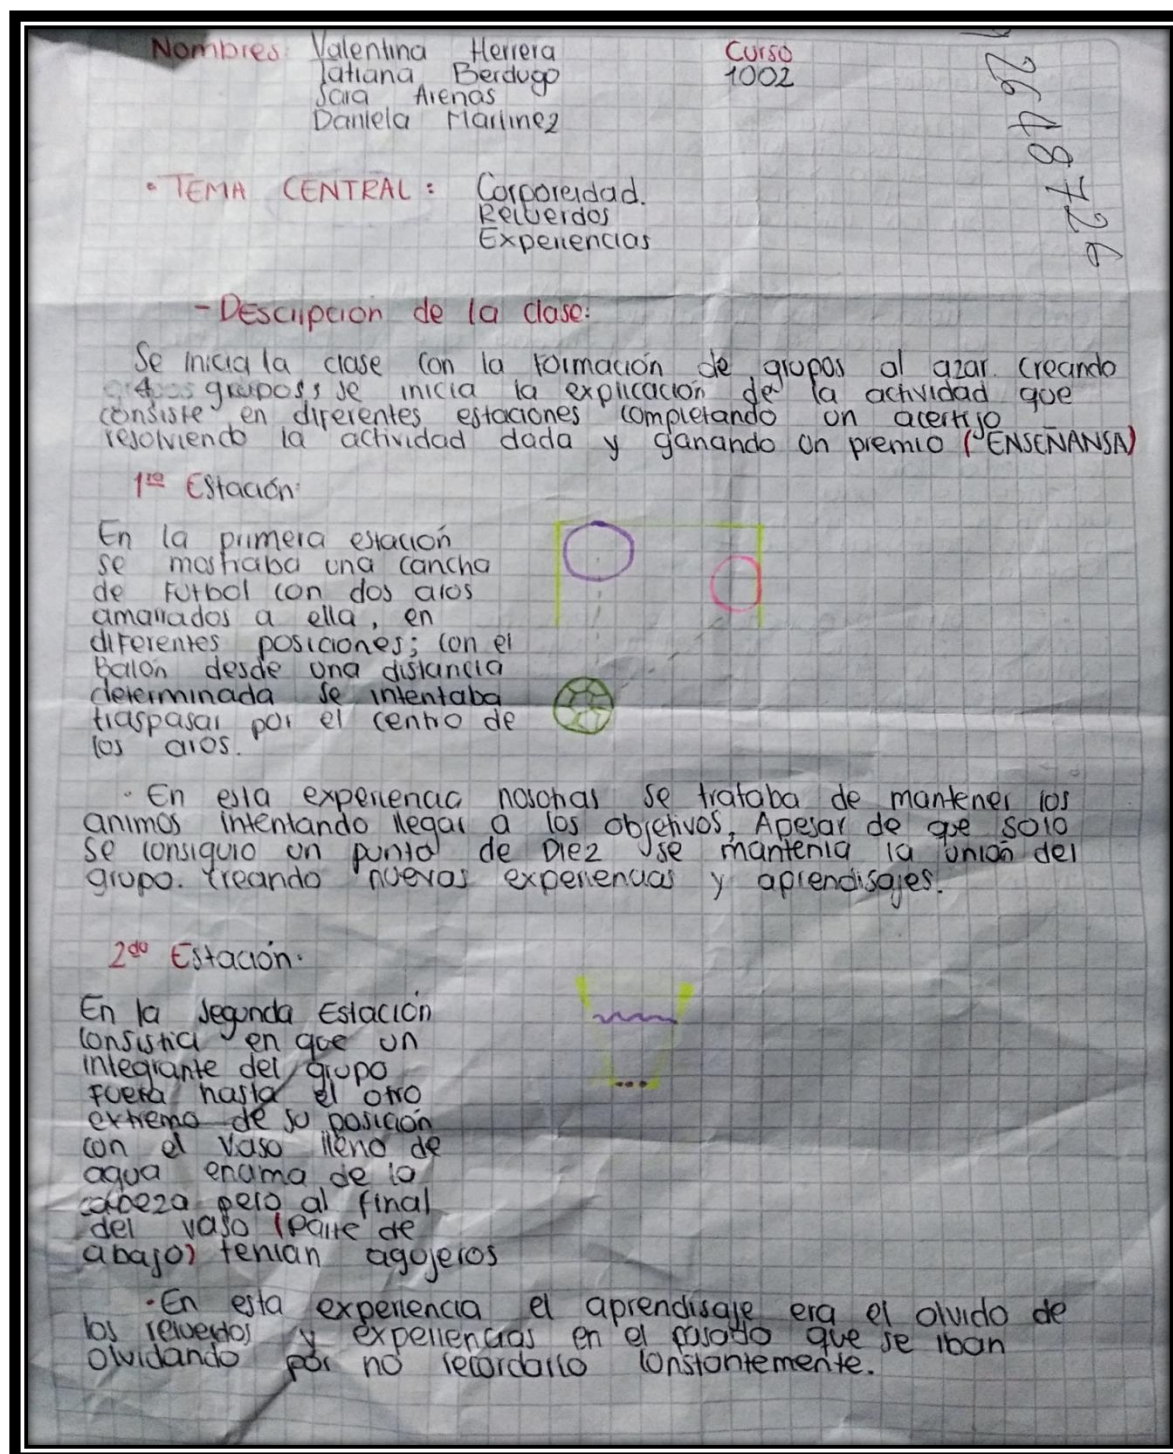 Nombres: Valentina Herrera
Tatiana Berdugo
Sara Arenas
Daniela Martinez
Curso
1002
2648726
• TEMA CENTRAL: Corporeidad.
Recuerdos
Experiencias
- Descripcion de la clase:
Se inicia la clase con la formación de grupos al azar. creando
grupos; se inicia la explicación de la actividad que
consiste en diferentes estaciones completando un acertijo
resolviendo la actividad dada y ganando un premio ("ENSEÑANSA)
1ra Estación:
En la primera estación
se mostraba una cancha
de Futbol con dos aros
amarrados a ella, en
diferentes posiciones; con el
Balón desde una distancia
determinada se intentaba
traspasar por el centro de
los aros.
• En esta experiencia nosotras se trataba de mantener los
animos intentando llegar a los objetivos, Apesar de que solo
se consiguio un punto de Diez se mantenia la unión del
grupo. creando nuevas experiencias y aprendisajes.
2do Estación.
En la Segunda Estación
consistia en que un
integrante del grupo
Fuera hasta el otro
extremo de su posición
con el vaso lleno de
agua encima de la
cabeza pero al final
del vaso (parte de
abajo) tenian agujeros
• En esta experiencia el aprendisaje era el olvido de
los recuerdos y experiencias en el pasado que se iban
olvidando por no recordarlo constantemente.